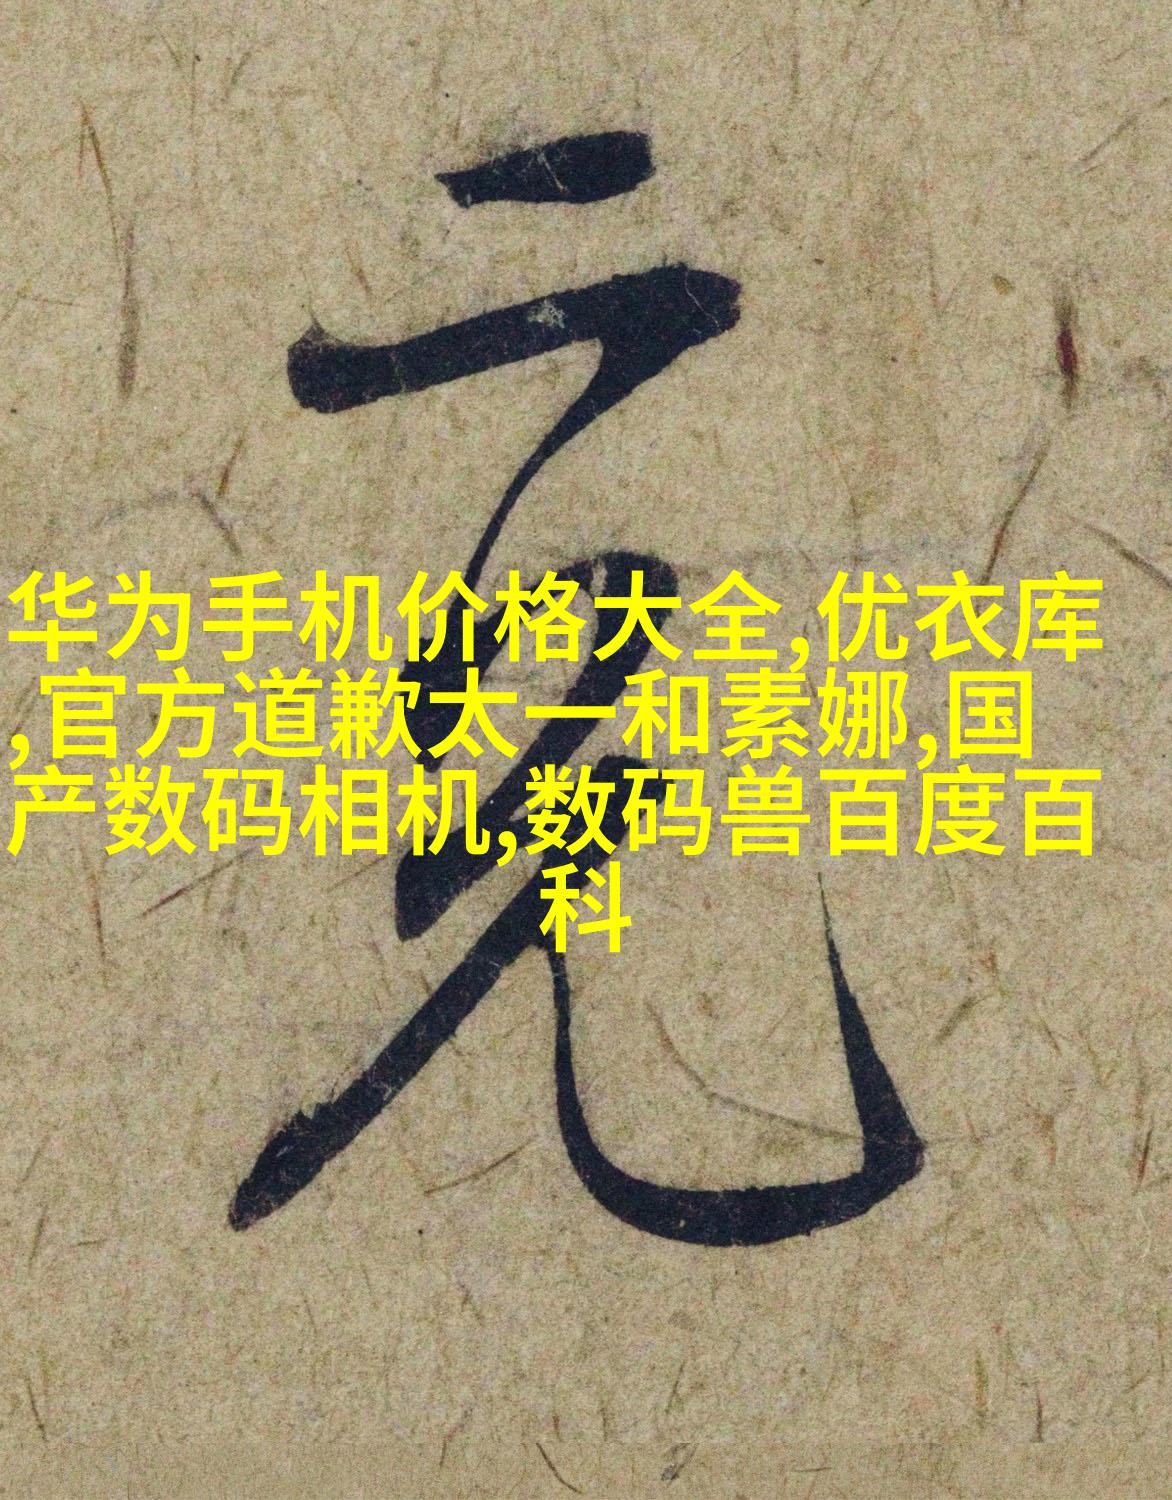 华为手机价格大全,优衣库
,官方道歉太一和素娜,国
产数码相机,数码兽百度百
科